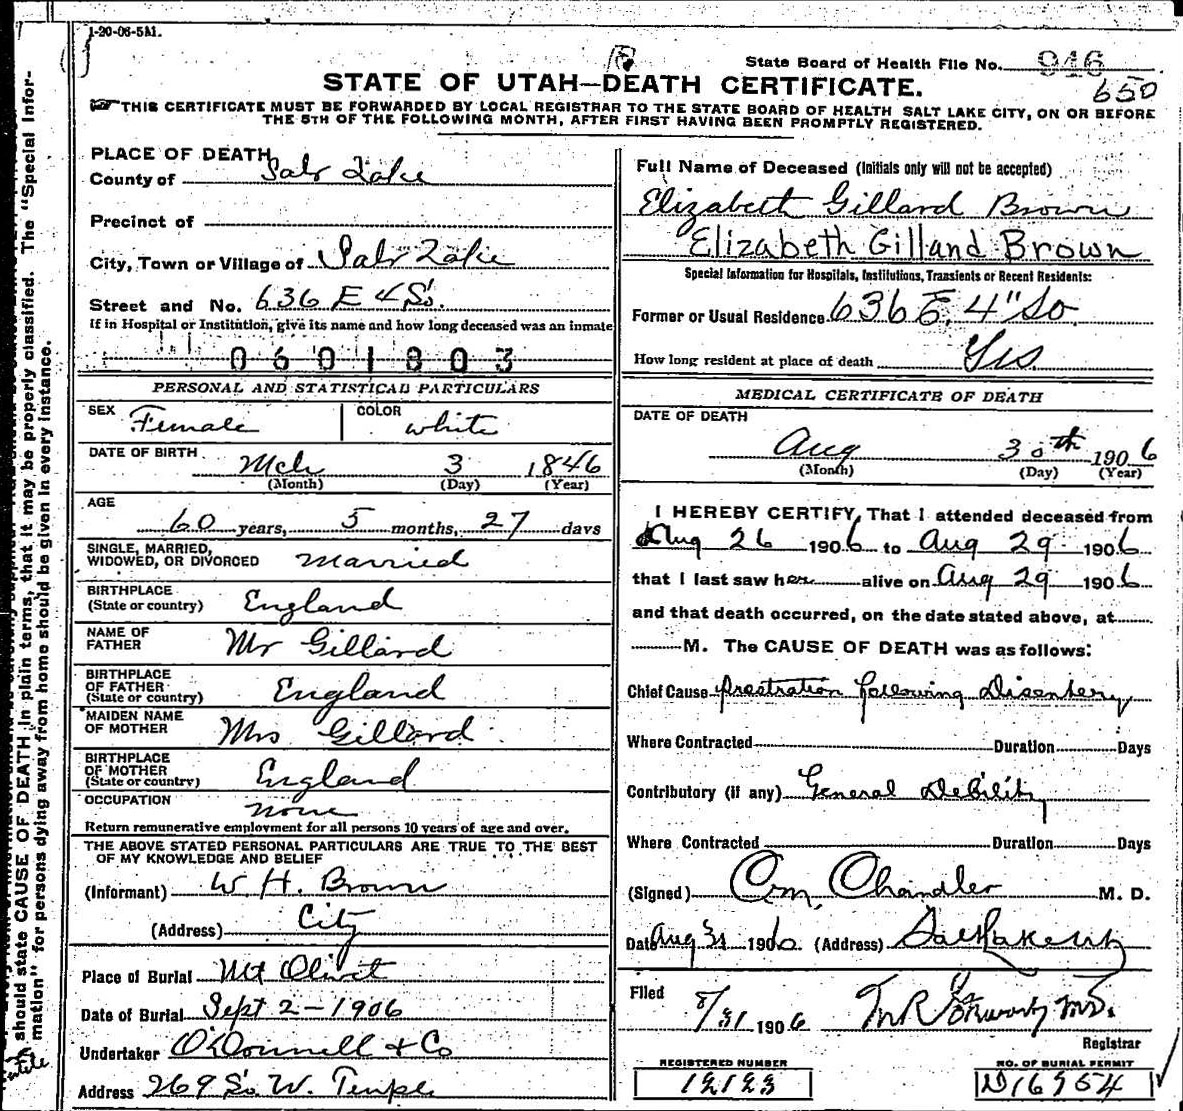 1-20-06-5M.
State Board of Health File No. 946
650
STATE OF UTAH—DEATH CERTIFICATE.
THIS CERTIFICATE MUST BE FORWARDED BY LOCAL REGISTRAR TO THE STATE BOARD OF HEALTH SALT LAKE CITY, ON OR BEFORE
THE 5TH OF THE FOLLOWING MONTH, AFTER FIRST HAVING BEEN PROMPTLY REGISTERED.
PLACE OF DEATH
County of Salt Lake
Precinct of
City, Town or Village of Salt Lake
Street and No. 636 E 4 So.
If in Hospital or Institution, give its name and how long deceased was an inmate
0601803
PERSONAL AND STATISTICAL PARTICULARS
SEX Female COLOR white
DATE OF BIRTH Mch 3 1846
(Month) (Day) (Year)
AGE 60 years, 5 months, 27 days
SINGLE, MARRIED,
WIDOWED, OR DIVORCED Married
BIRTHPLACE
(State or country) England
NAME OF
FATHER Mr Gillard
BIRTHPLACE
OF FATHER
(State or country) England
MAIDEN NAME
OF MOTHER Mrs Gillard
BIRTHPLACE
OF MOTHER
(State or country) England
OCCUPATION none
Return remunerative employment for all persons 10 years of age and over.
THE ABOVE STATED PERSONAL PARTICULARS ARE TRUE TO THE BEST
OF MY KNOWLEDGE AND BELIEF
(Informant) W H. Brown
(Address) City
Place of Burial Mt Olivet
Date of Burial Sept 2-1906
Undertaker O'Donnell & Co
Address 269 So W. Temple
Full Name of Deceased (Initials only will not be accepted)
Elizabeth Gillard Brown
Elizabeth Gilland Brown
Special Information for Hospitals, Institutions, Transients or Recent Residents:
Former or Usual Residence 636 E. 4" So
How long resident at place of death Yrs.
MEDICAL CERTIFICATE OF DEATH
DATE OF DEATH
Aug 30th 1906
(Month) (Day) (Year)
I HEREBY CERTIFY, That I attended deceased from
Aug 26 1906 to Aug 29 1906
that I last saw her alive on Aug 29 1906
and that death occurred, on the date stated above, at
M. The CAUSE OF DEATH was as follows:
Chief Cause Prostration following Disentery
Where Contracted Duration Days
Contributory (if any) General Debility
Where Contracted Duration Days
(Signed) Chandler M. D.
Date Aug 31 1906. (Address) Salt Lake City
Filed 8/31 1906
Registrar
REGISTERED NUMBER
12123
NO. OF BURIAL PERMIT
D16954
should state CAUSE OF DEATH in plain terms, that it may be properly classified. The "Special Infor-
mation" for persons dying away from home should be given in every instance.